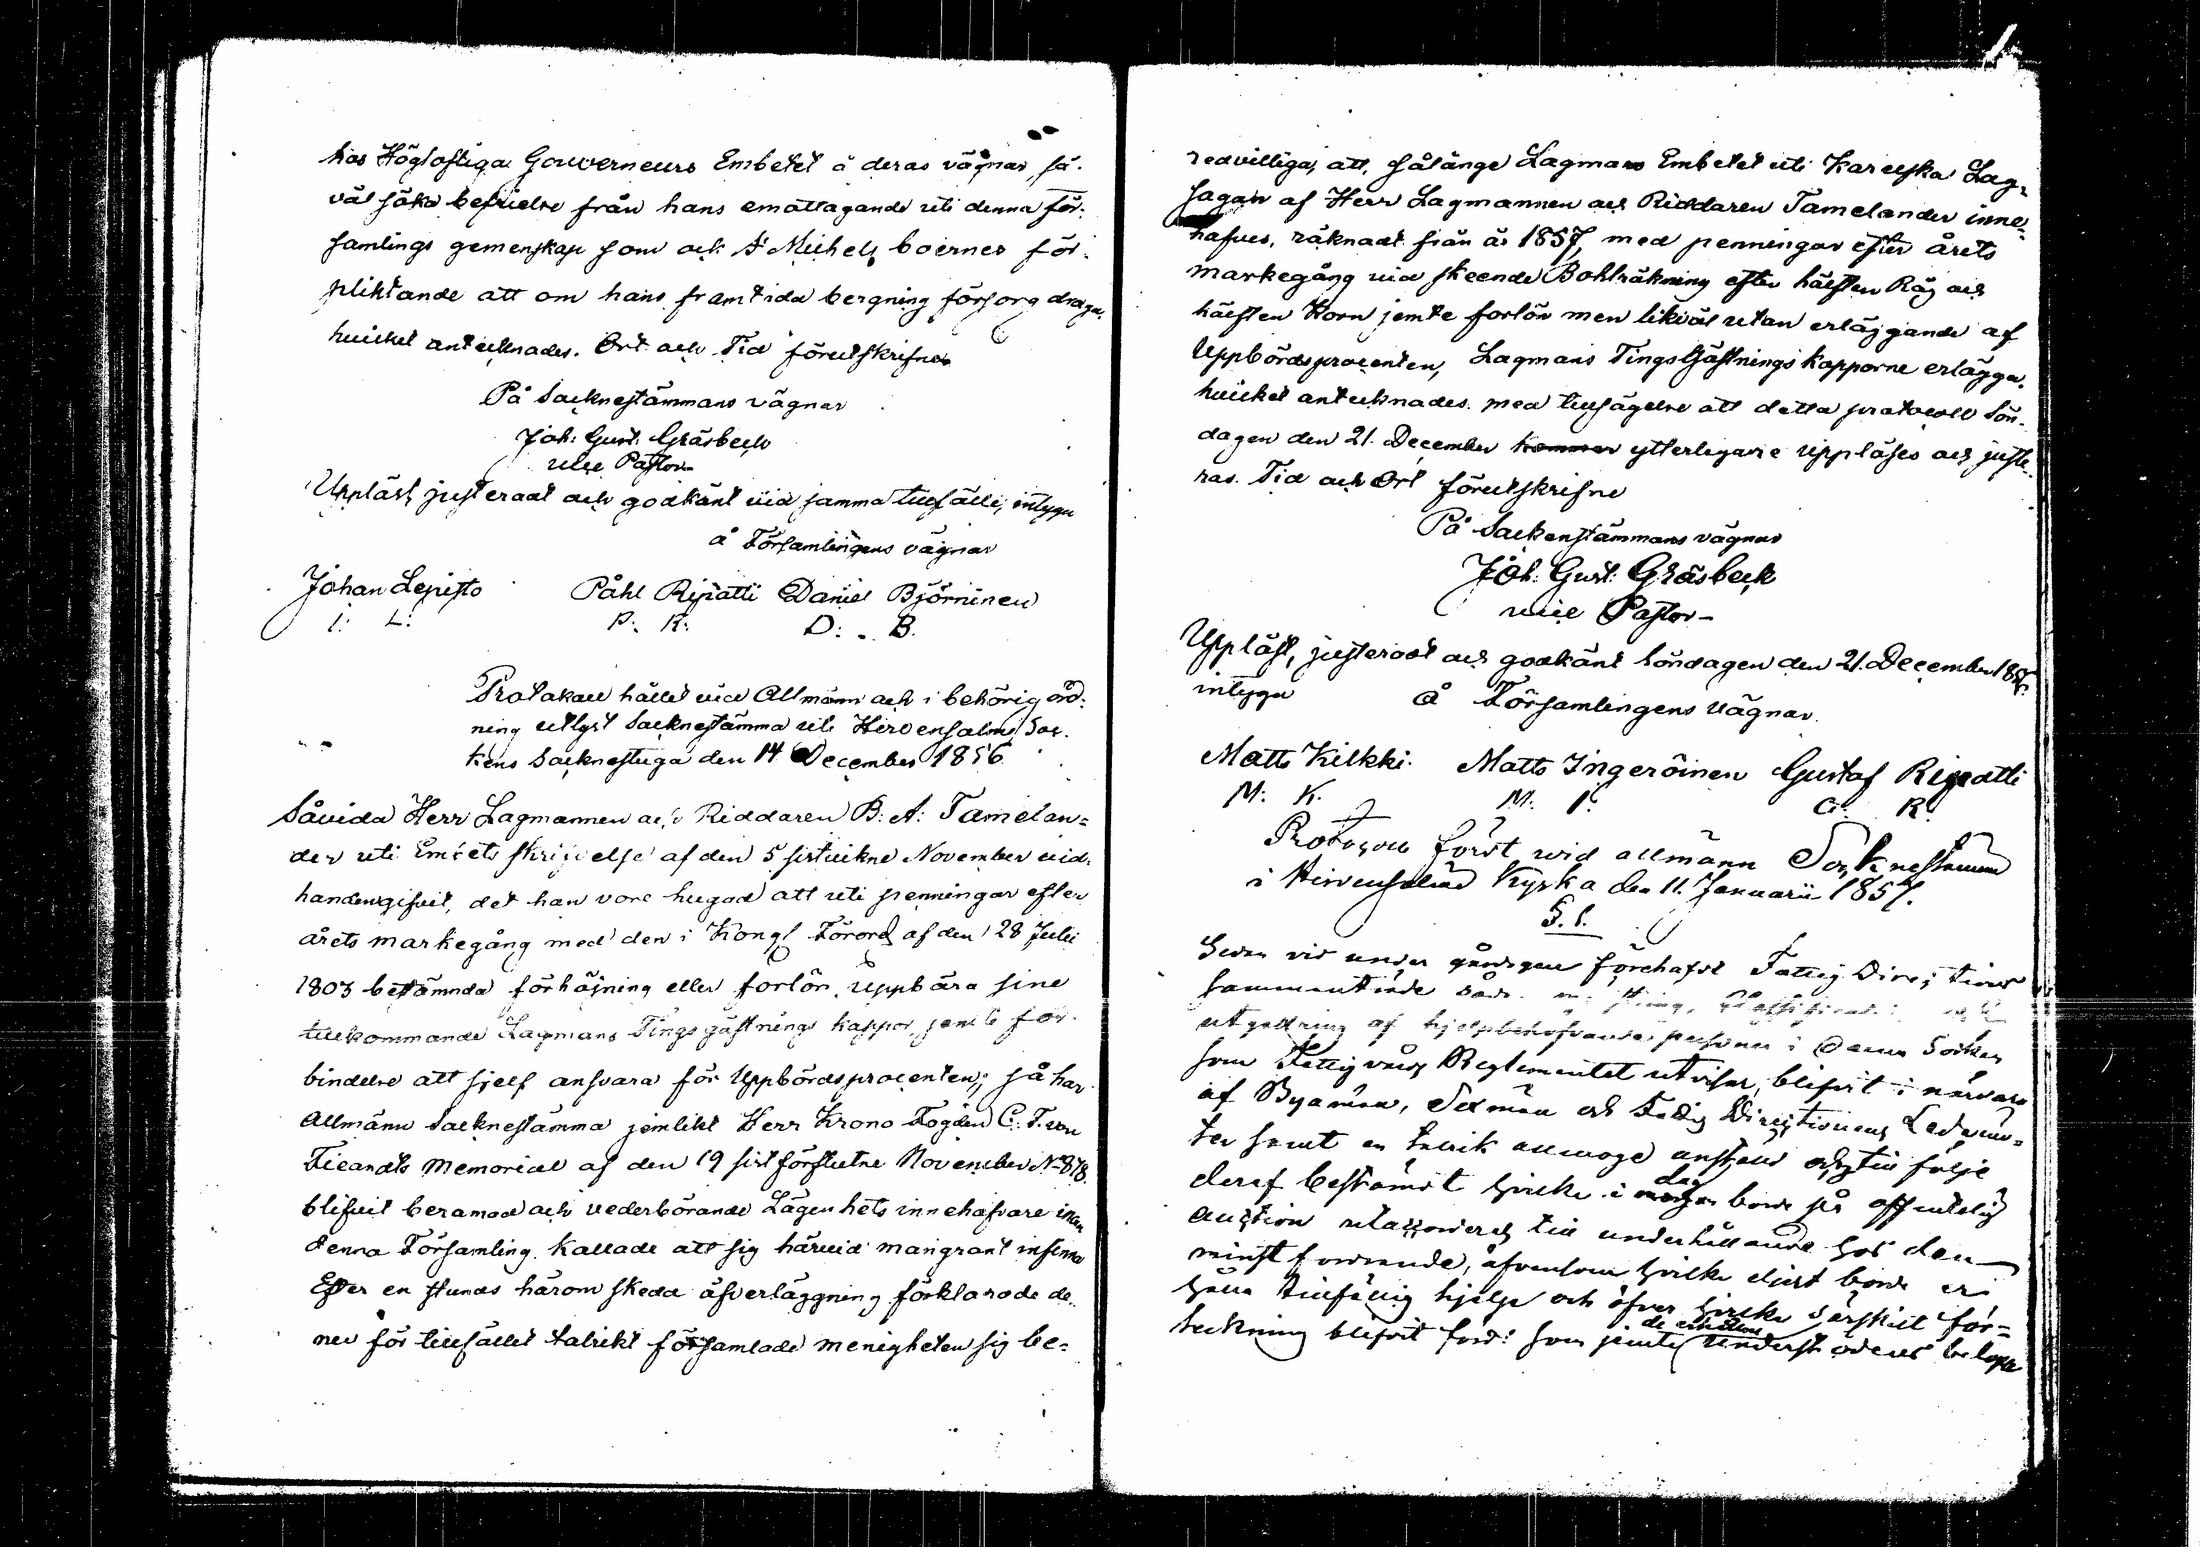 hos Höglofliga Gouverneurs Embetet å deras vägnar, så-
väl söka befrielse från hans emottagande uti denna för-
samlings gemenskap som ock St Michels boernes för-
pliktande att om hans framtida bergning försorg draga,
hvilket antecknades. Ort och Tid förutskrifne
På Socknestämmans vägnar
Joh: Gust: Gråsbeck
vice Pastor
Uppläst, justeradt och godkänt vid samma tillfälle, intyga
å Församlingens vägnar
Johan Lepisto Påhl Ripatti Daniel Björninen
I: L: P: R: D: B.
Protokoll hållet vid Allmänn och i behörig ord-
ning utlyst Socknestämma uti Hirvensalmi Soc-
kens Socknestuga den 14 December 1856
Såvida Herr Lagmannen och Riddaren B: A: Tamelan=
der uti Embets skrifvelse af den 5 sistvikne November vid-
handengifvit, det han vore hugad att uti penningar efter
årets markegång med den i Kongl Förord af den 28 Julii
1803 bestämnda förhöjning eller forlön uppbära sine
tillkommande Lagmans Tings gästnings kappor, jemte för-
bindelse att sjelf ansvara för Uppbördsprocenten; så har
Allmänn Socknestämma jemlikt Herr Krono Fogden C. F. von
Fieandts Memorial af den 19 sistförflutne November No 878
blifvit beramad och vederbörande Lägenhets innehafvare inan
denna Församling kallade att sig härvid mangrant infinna
Efter en stunds härom skedd öfverläggning förklarade de-
ne för tillfället talrikt församlade menigheten sig be=
redvilliga, att, sålänge Lagmans Embetet uti Karelska Lag=
sagan af Herr Lagmannen och Riddaren Tamelander inne-
hafves, räknadt från år 1857, med penningar efter årets
markegång vid skeende Bohlräkning efter hälften Råg och
hälften Korn jemte forlön men likväl utan erläggande af
Uppbördsprocenten, Lagmans Tings Gästnings kapporne erlägga,
hvilket antecknades med tillsägelse att detta protocoll Sön-
dagen den 21 December kommer ytterligare uppläses och juste-
ras. Tid och Ort förutskrifne
På Sockenstämmans vägnar
Joh: Gust: Gråsbeck
vice Pastor
Uppläst, justeradt och godkänt Söndagen den 21 December 1856,
intyga å Församlingens vägnar
Matts Kilkki. Matts Ingeröinen Gustaf Ripatti
M: K. M: I: G: R.
Protocoll fördt wid allmänn Socknestämma
i Hirvensalmi Kyrka den 11. Januarii 1857.
§. 1.
Sedan vid under gårdagen förehafd Fattig Direktions
sammanträde
utgallring af hjelpbehöfvande personer i denna Socken
som Fattigvårds Reglementet utvisar, blifvit i närvaro
af Byamän, Sexmän och Fattig Direktionens Ledamö=
ter samt en talrik allmoge anställd och till följe
deraf bestämdt hvilke i dag borde på offentelig
auktion utackorderas till underhållande hos den
minst fordrande, äfvensom hvilke eljest borde er-
hålla tillfällig hjelp och öfver hvilke särskilt för=
teckning blifvit förd: som jemte de erhållne understödens belopp